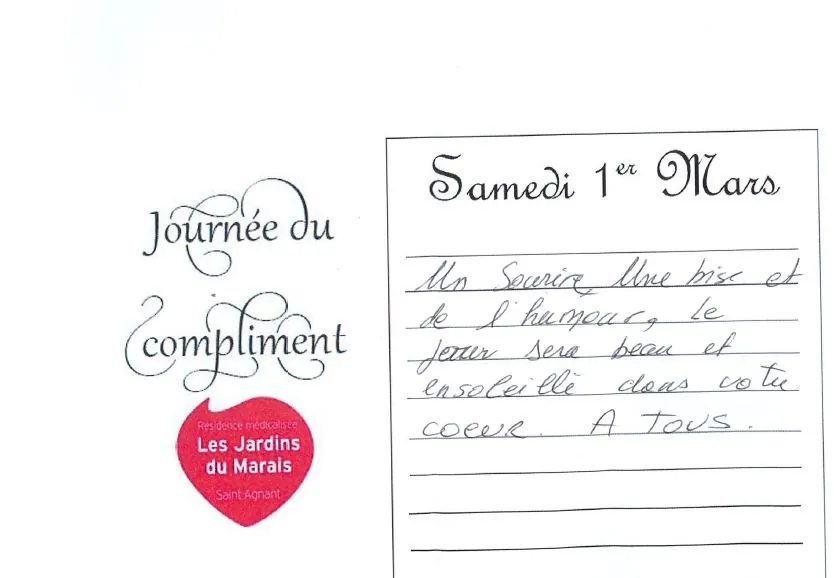 Journée du
compliment
Résidence médicalisée
Les Jardins
du Marais
Saint Agnant
Samedi 1er Mars
Un Sourire, Une bise et
de l'humour, Le
jour sera beau et
ensoleillé dans votre
coeur. A TOUS.